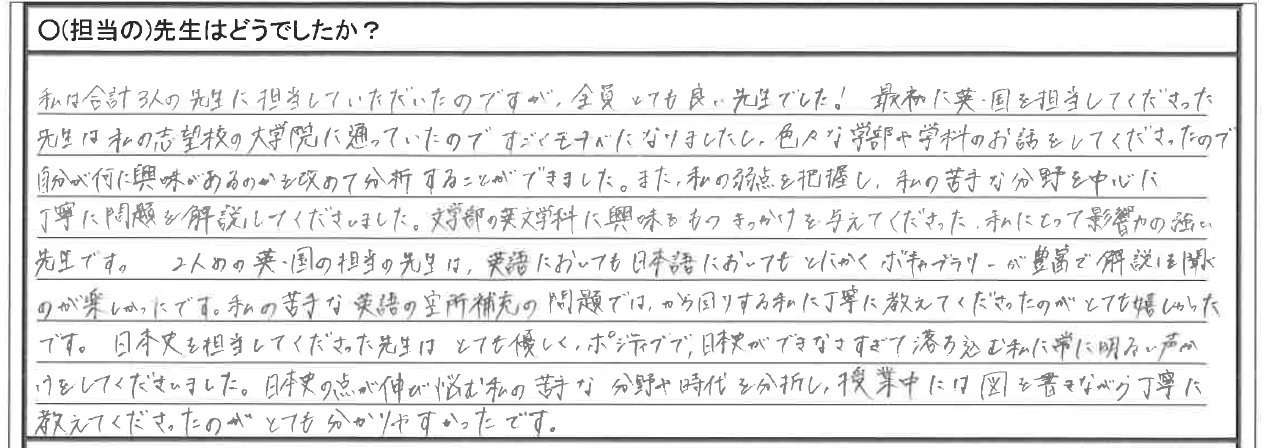 〇(担当の)先生はどうでしたか？
私は合計3人の先生に担当していただいたのですが、全員とても良い先生でした! 最初に英・国を担当してくださった
先生は私の志望校の大学院に通っていたのですごくモチベになりましたし、色々な学部や学科のお話をしてくださったので
自分が何に興味があるのかを改めて分析することができました。また、私の弱点を把握し、私の苦手な分野を中心に
丁寧に問題を解説してくださいました。文学部の英文学科に興味をもつきっかけを与えてくださった、私にとって影響力の強い
先生です。 2人めの英・国の担当の先生は、英語においても日本語においてもとにかくボキャブラリーが豊富で解説を聞く
のが楽しかったです。私の苦手な英語の空所補充の問題では、から回りする私に丁寧に教えてくださったのがとても嬉しかった
です。 日本史を担当してくださった先生はとても優しく、ポジティブで、日本史ができなさすぎて落ち込む私に常に明るい声か
けをしてくださいました。日本史の点が伸び悩む私の苦手な分野や時代を分析し、授業中には図を書きながら丁寧に
教えてくださったのがとても分かりやすかったです。